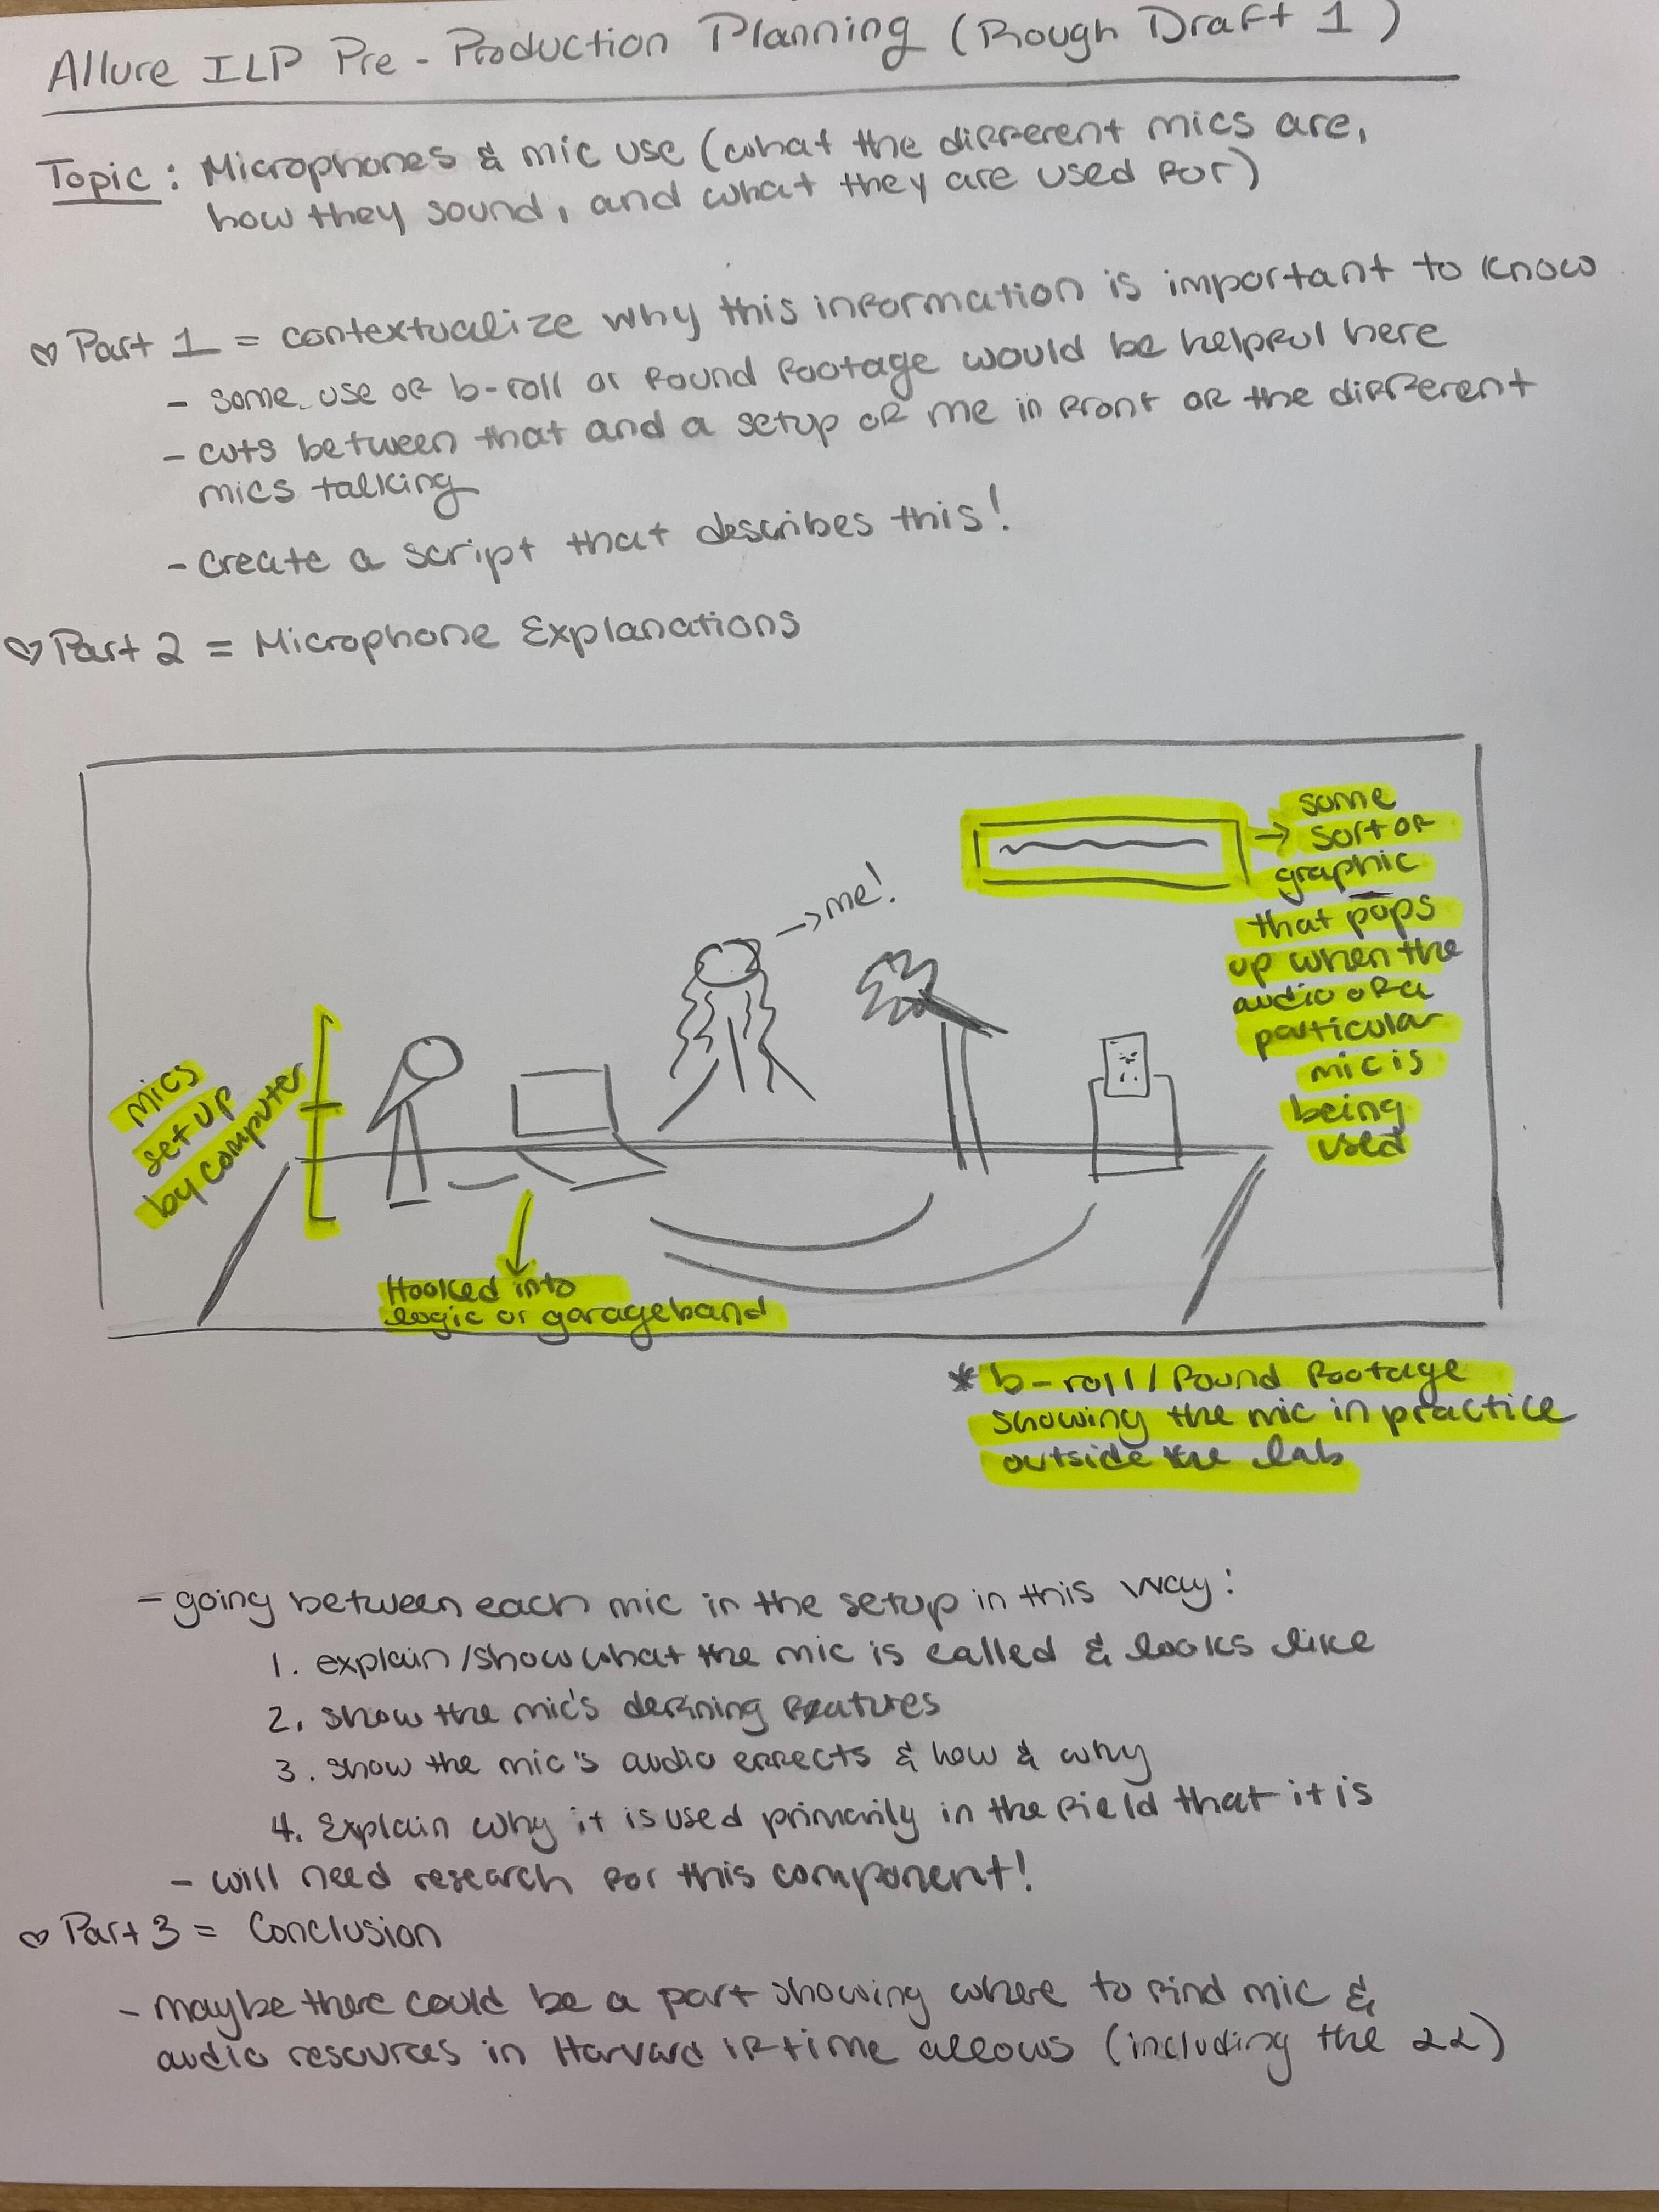 Allure ILP Pre-Production Planning (Rough Draft 1)
Topic: Microphones & mic use (what the different mics are,
how they sound, and what they are used for)
♡ Part 1 = contextualize why this information is important to know
- some use of b-roll or found footage would be helpful here
- cuts between that and a setup of me in front of the different
mics talking
- create a script that describes this!
♡ Part 2 = Microphone Explanations
→ some
sort of
graphic
that pops
up when the
audio of a
particular
mic is
being
used
→ me!
mics
set up
by computer
Hooked into
logic or garageband
* b-roll / found footage
showing the mic in practice
outside the lab
- going between each mic in the setup in this way:
1. explain/show what the mic is called & looks like
2. show the mic's defining features
3. show the mic's audio effects & how & why
4. Explain why it is used primarily in the field that it is
- will need research for this component!
♡ Part 3 = Conclusion
- maybe there could be a part showing where to find mic &
audio resources in Harvard if time allows (including the LL)